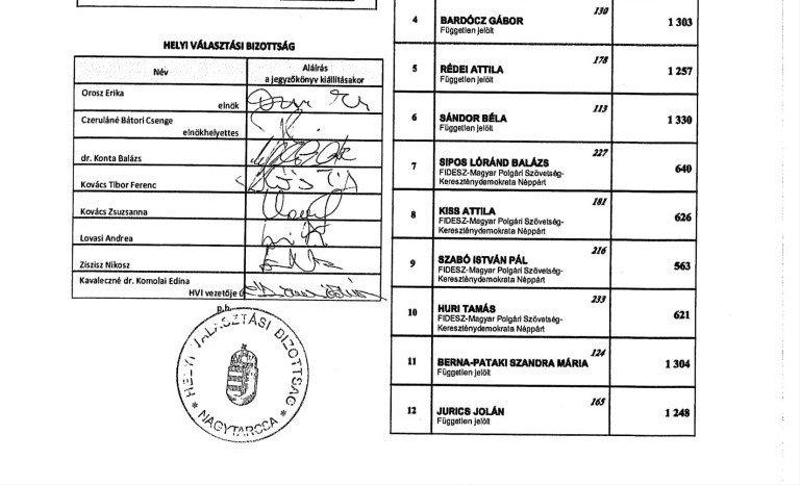 HELYI VÁLASZTÁSI BIZOTTSÁG
Név
Aláírás
a jegyzőkönyv kiállításakor
Orosz Erika
elnök
Czeruláné Bátori Csenge
elnökhelyettes
dr. Konta Balázs
Kovács Tibor Ferenc
Kovács Zsuzsanna
Lovasi Andrea
Ziszisz Nikosz
Kavaleczné dr. Komolai Edina
HVI vezetője
P.h.
HELYI VÁLASZTÁSI BIZOTTSÁG
* NAGYTARCSA *
4 BARDÓCZ GÁBOR 130 1 303
Független jelölt
5 RÉDEI ATTILA 178 1 257
Független jelölt
6 SÁNDOR BÉLA 113 1 330
Független jelölt
7 SIPOS LÓRÁND BALÁZS 227 640
FIDESZ-Magyar Polgári Szövetség-
Kereszténydemokrata Néppárt
8 KISS ATTILA 181 626
FIDESZ-Magyar Polgári Szövetség-
Kereszténydemokrata Néppárt
9 SZABÓ ISTVÁN PÁL 216 563
FIDESZ-Magyar Polgári Szövetség-
Kereszténydemokrata Néppárt
10 HURI TAMÁS 233 621
FIDESZ-Magyar Polgári Szövetség-
Kereszténydemokrata Néppárt
11 BERNA-PATAKI SZANDRA MÁRIA 124 1 304
Független jelölt
12 JURICS JOLÁN 165 1 248
Független jelölt